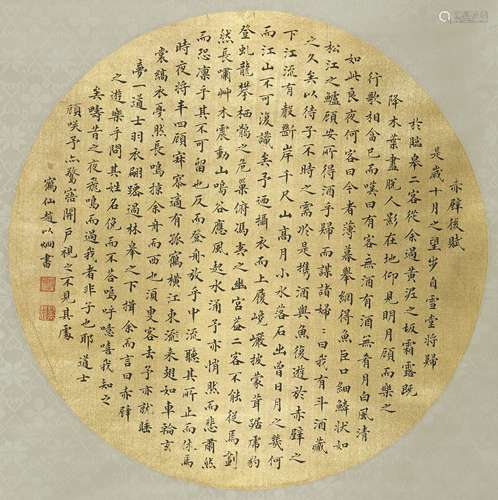 赤壁後賦
是歲十月之望步自雪堂將歸
於臨皋二客從余過黃泥之坂霜露既
降木葉盡脫人影在地仰見明月顧而樂之
行歌相答已而嘆曰有客無酒有酒無肴月白風清
如此良夜何客曰今者薄暮舉網得魚巨口細鱗狀如
松江之鱸顧安所得酒乎歸而謀諸婦:曰我有斗酒藏
之久矣以待子不時之需於是携酒與魚復遊於赤壁之
下江流有聲斷岸千尺山高月小水落石出曾日月之幾何
而江山不可復識矣予迺攝衣而上履巉巖披蒙茸踞虎豹
登虬龍攀栖鶻之危巢俯馮夷之幽宮盖二客不能從焉劃
然長嘯艸木震動山鳴谷應風起水涌予亦悄然而悲肅然
而恐凜乎其不可留也反而登舟放乎中流聽其所止而休焉
時夜將半四顧寂寥適有孤鶴橫江東來翅如車輪玄
裳縞衣戛然長鳴掠余舟而西也須臾客去予亦就睡
夢一道士羽衣翩躚過臨皋之下揖余而言曰赤壁
之遊樂乎問其姓名俛而不答嗚呼噫嘻我知之
矣疇昔之夜飛鳴而過我者非子也耶道士
顧笑予亦驚寤開戶視之不見其處
鶴仙趙以炯書